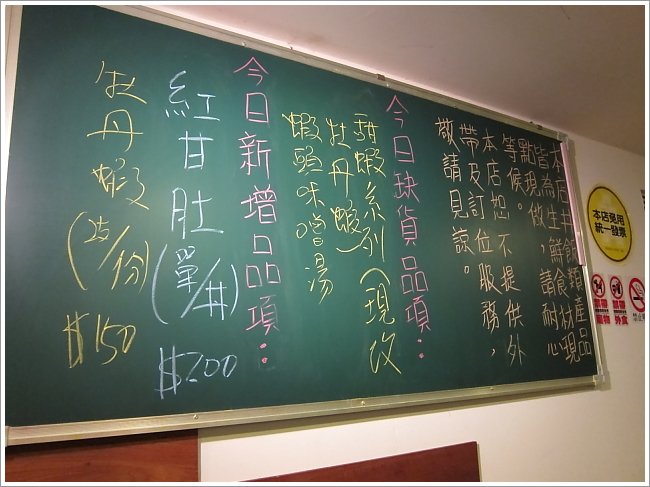 本店丼飯類產品
皆為生鮮食材現
點現做，請耐心
等候。
本店恕不提供外
帶及訂位服務，
敬請見諒。
今日缺貨品項：
甜蝦系列(現改
牡丹蝦)
蝦頭味噌湯
今日新增品項：
紅甘肚(單/丼) $200
牡丹蝦(/份) $150
本店免用
統一發票
禁帶
寵物
禁帶
外食